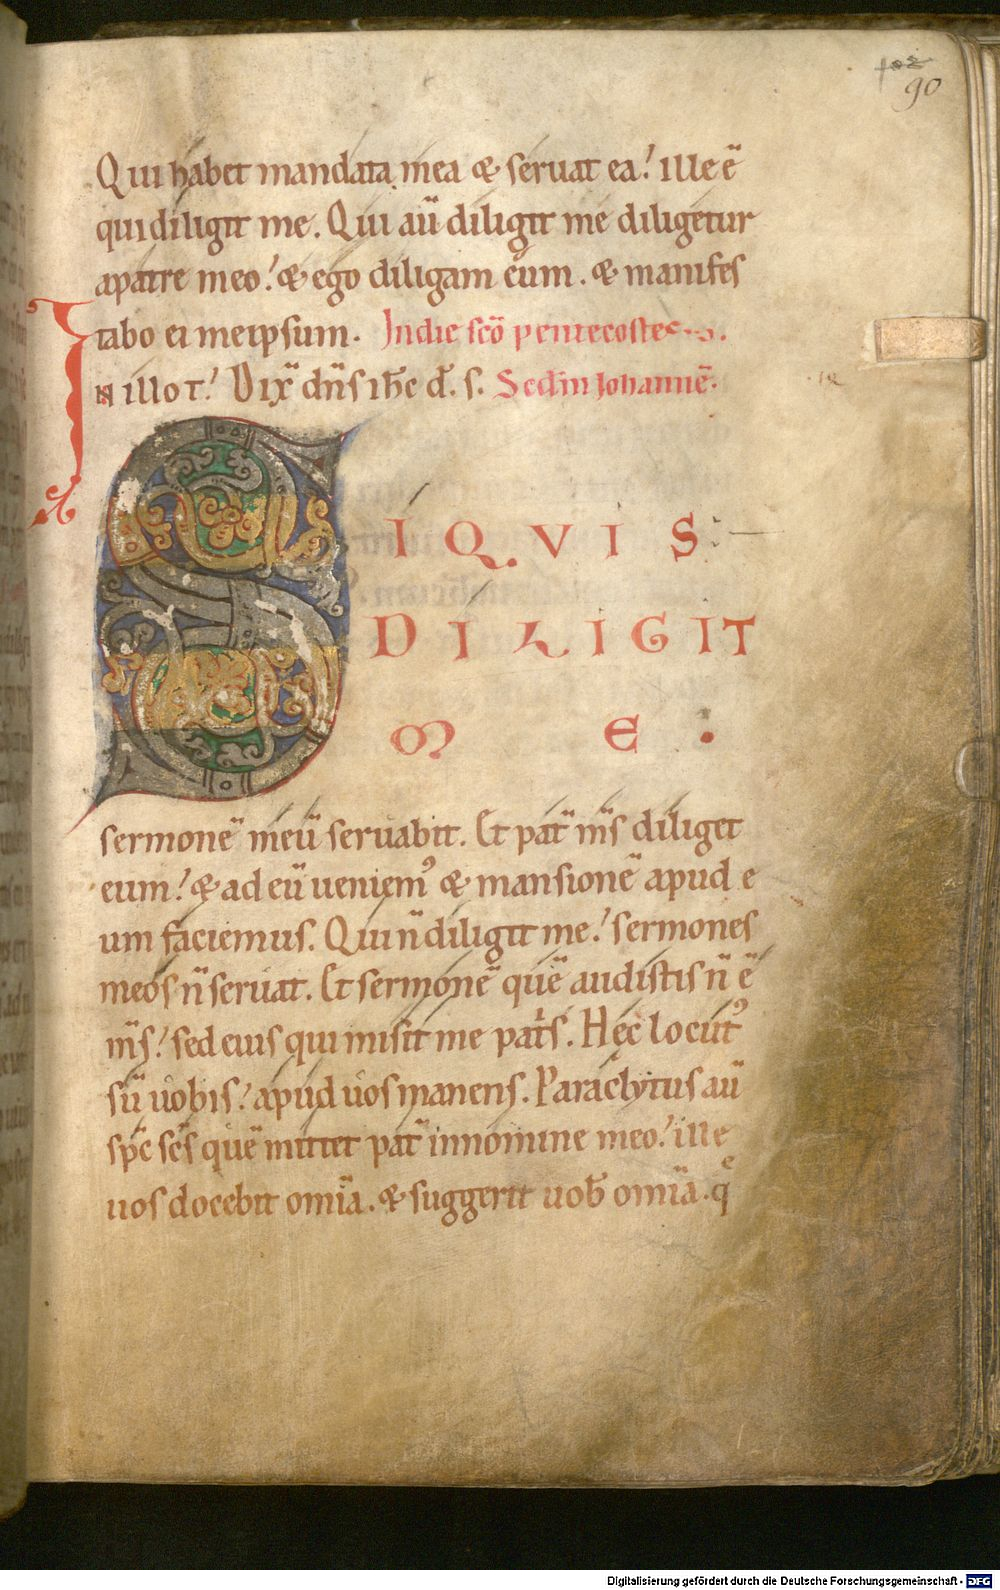 102
90
Qui habet mandata mea & seruat ea! ille ē
qui diligit me. Qui aū diligit me diligetur
apatre meo! & ego diligam eum. & manifes
tabo ei meipsum. Indie scō pentecostes.
In illo t! Dix̄ dn̄s ih̄c d̄. s. Scd̄m Iohannē.
SIQVIS
DILIGIT
ME.
sermonē meū seruabit. Et pat̄ m̄s diliget
eum! & ad eū ueniem᾽ & mansionē apud e
um faciemus. Qui n̄ diligit me! sermones
meos n̄ seruat. Et sermonē quē audistis n̄ ē
m̄s! sed eius qui misit me pat̄s. Hęc locut᾽
sū uobis! apud uos manens. Paraclytus aū
sp̄c sc̄s quē mittet pat̄ in nomine meo! ille
uos docebit om̄ia. & suggerit uob̄ om̄ia. qͤ
Digitalisierung gefördert durch die Deutsche Forschungsgemeinschaft - DFG